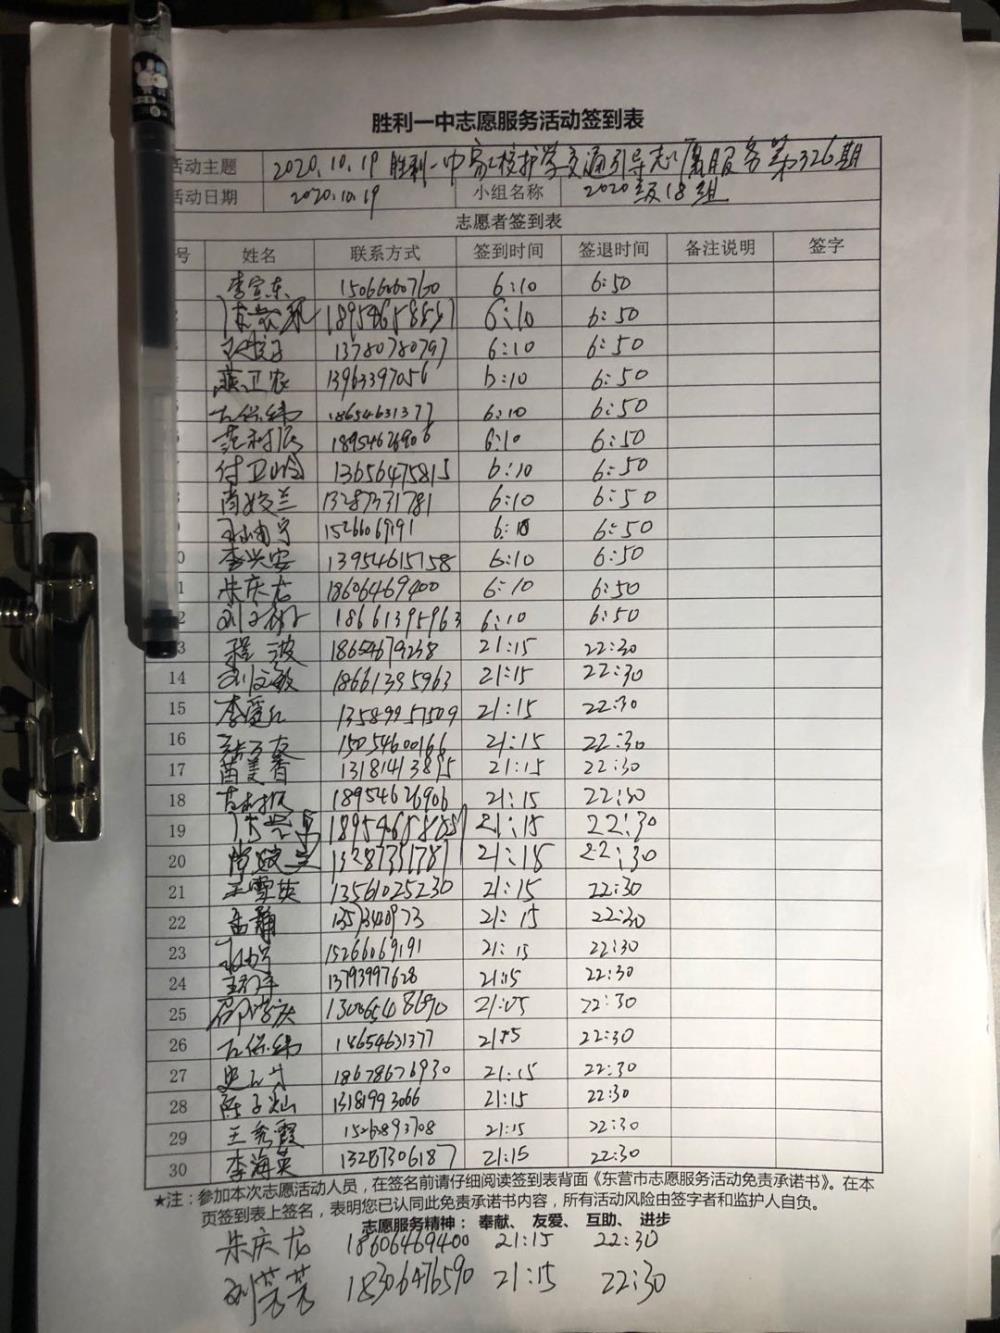 胜利一中志愿服务活动签到表
活动主题 2020.10.19 胜利一中高化校护学交通引导志愿服务第326期
活动日期 2020.10.19 小组名称 2020级18组
志愿者签到表
号 姓名 联系方式 签到时间 签退时间 备注说明 签字
李宣东 6:10 6:50
6:10 6:50
13780780797 6:10 6:50
燕卫农 13963397056 6:10 6:50
18654631377 6:10 6:50
范利振 18954626906 6:10 6:50
付卫岭 13656475815 6:10 6:50
尚姣兰 13287331781 6:10 6:50
15266069191 6:10 6:50
0 李兴安 13954615158 6:10 6:50
1 朱庆龙 18606469400 6:10 6:50
2 刘文敏 18661395963 6:10 6:50
3 程波 18654679238 21:15 22:30
14 刘文敏 18661395963 21:15 22:30
15 李爱红 13589957509 21:15 22:30
16 15054600166 21:15 22:30
17 苗美香 13181413895 21:15 22:30
18 范利振 18954626906 21:15 22:30
19 21:15 22:30
20 尚姣兰 13287331781 21:15 22:30
21 王雪英 13561025230 21:15 22:30
22 孟静 21:15 22:30
23 15266069191 21:15 22:30
24 13793997628 21:15 22:30
25 21:05 22:30
26 18654631377 21:15 22:30
27 18678676930 21:15 22:30
28 陈子灿 13181993066 21:15 22:30
29 王秀霞 15262893708 21:15 22:30
30 李海英 13287306187 21:15 22:30
★注：参加本次志愿活动人员，在签名前请仔细阅读签到表背面《东营市志愿服务活动免责承诺书》。在本
页签到表上签名，表明您已认同此免责承诺书内容，所有活动风险由签字者和监护人自负。
志愿服务精神： 奉献、 友爱、 互助、 进步
朱庆龙 18606469400 21:15 22:30
刘芳芳 18306476590 21:15 22:30